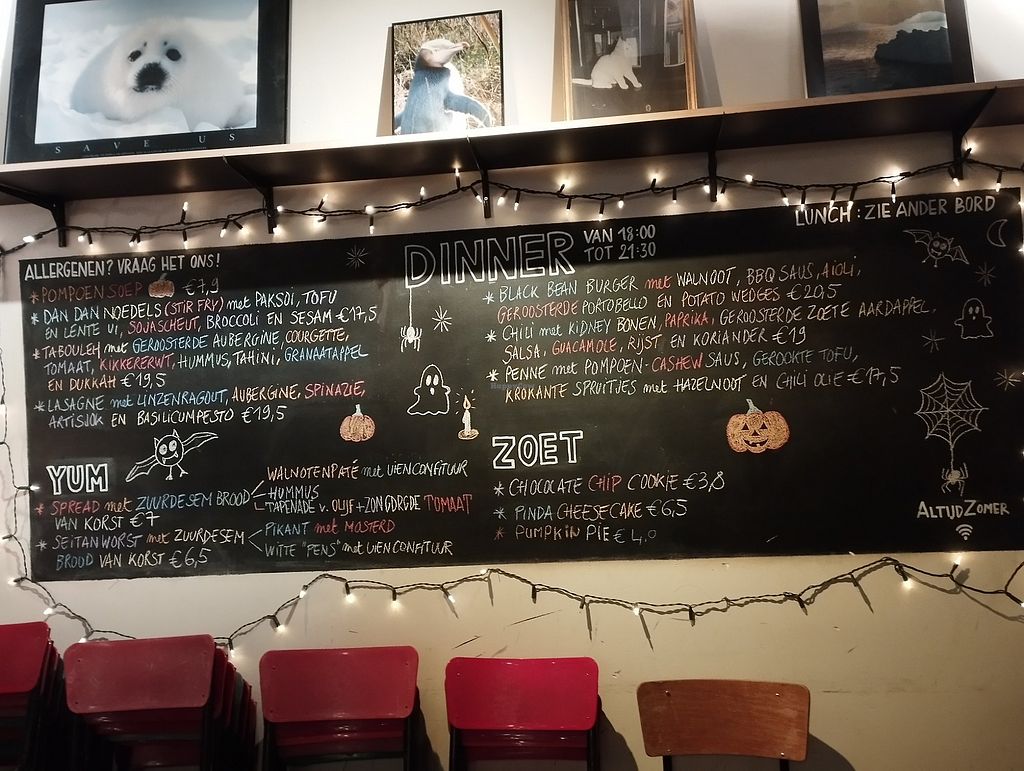 SAVE US
LUNCH: ZIE ANDER BORD
DINNER
VAN 18:00
TOT 21:30
ALLERGENEN? VRAAG HET ONS!
* POMPOEN SOEP €7,9
* DAN DAN NOEDELS (STIR FRY) met PAKSOI, TOFU
EN LENTE UI, SOJASCHEUT, BROCCOLI EN SESAM €17,5
* TABOULEH met GEROOSTERDE AUBERGINE, COURGETTE,
TOMAAT, KIKKERERWT, HUMMUS, TAHINI, GRANAATAPPEL
EN DUKKAH €19,5
* LASAGNE met LINZENRAGOUT, AUBERGINE, SPINAZIE,
ARTISJOK EN BASILICUMPESTO €19,5
* BLACK BEAN BURGER met WALNOOT, BBQ SAUS, AIOLI,
GEROOSTERDE PORTOBELLO EN POTATO WEDGES €20,5
* CHILI met KIDNEY BONEN, PAPRIKA, GEROOSTERDE ZOETE AARDAPPEL,
SALSA, GUACAMOLE, RIJST EN KORIANDER €19
* PENNE met POMPOEN-CASHEW SAUS, GEROOKTE TOFU,
KROKANTE SPRUITJES met HAZELNOOT EN CHILI OLIE €17,5
YUM
* SPREAD met ZUURDESEM BROOD
VAN KORST €7
WALNOTENPATÉ met UIENCONFITUUR
HUMMUS
TAPENADE v. OLIJF + ZONGDRGDE TOMAAT
* SEITANWORST met ZUURDESEM
BROOD VAN KORST €6,5
PIKANT met MOSTERD
WITTE "PENS" met UIENCONFITUUR
ZOET
* CHOCOLATE CHIP COOKIE €3,8
* PINDA CHEESECAKE €6,5
* PUMPKIN PIE €4,0
ALTIJDZOMER